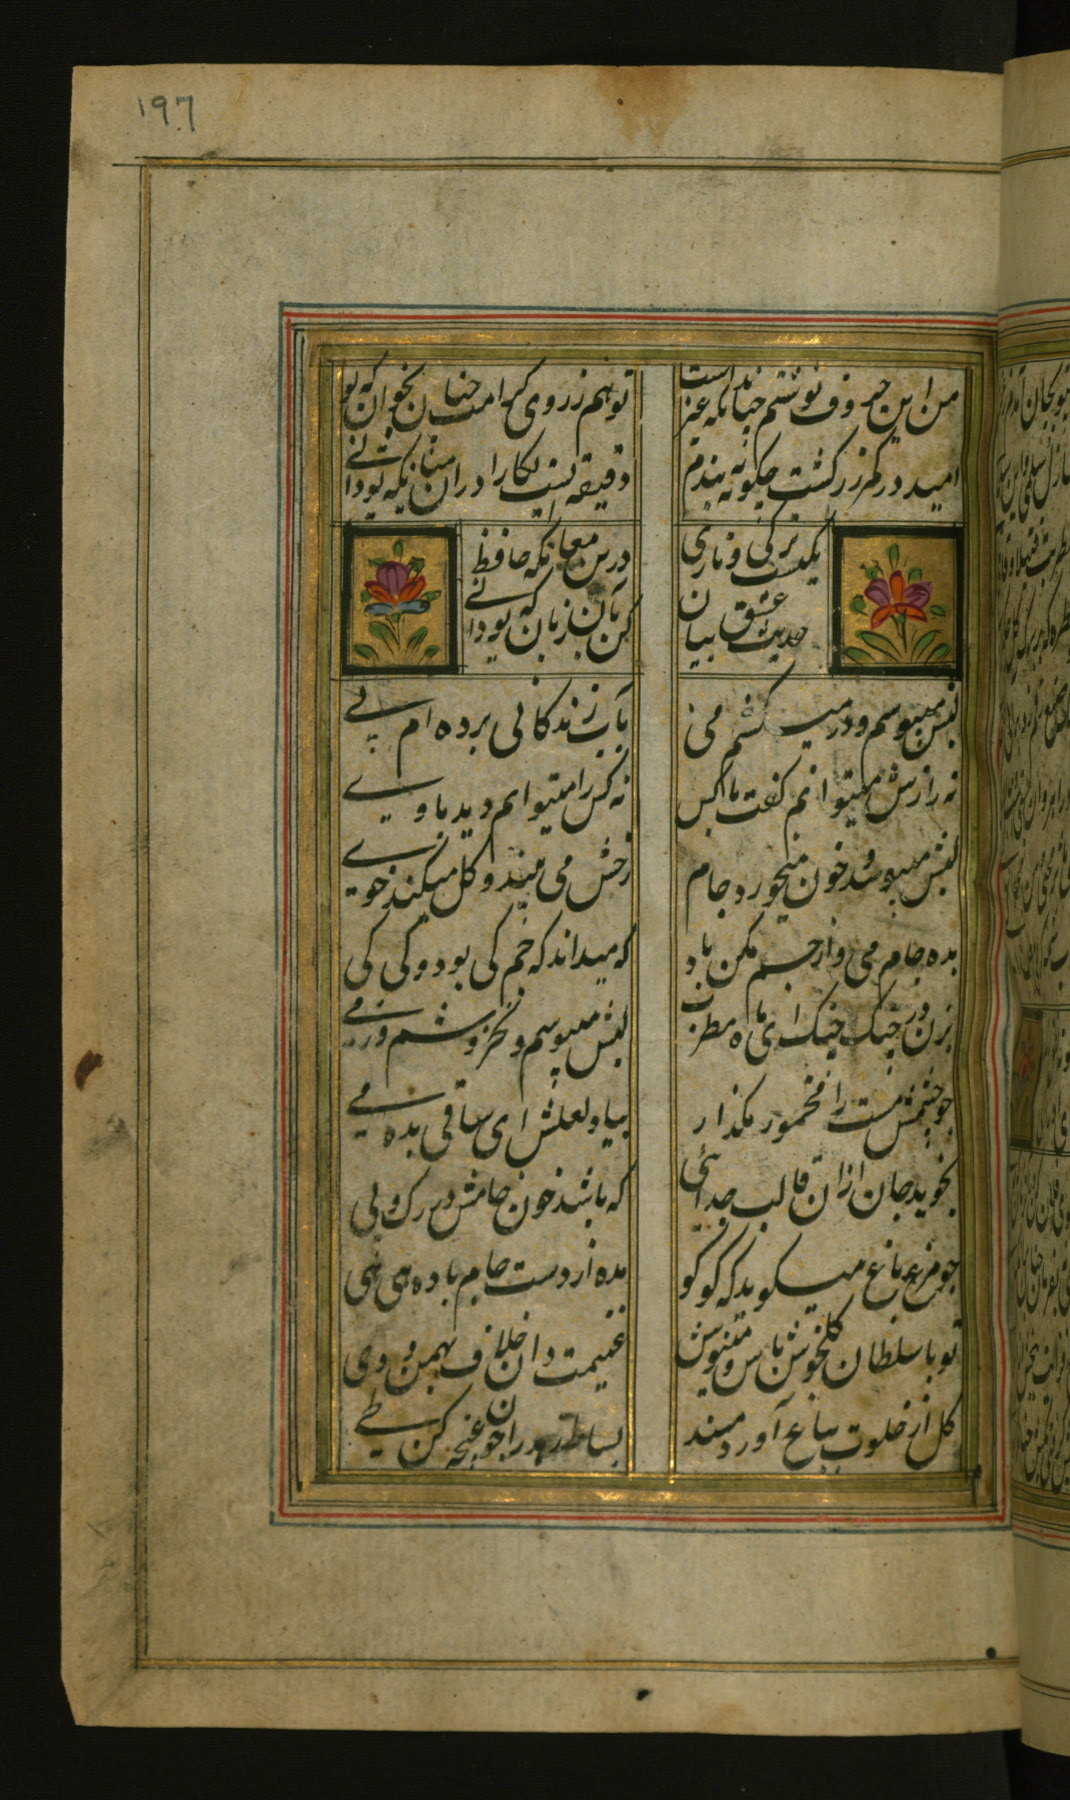 197
من این حروف نوشتم چنانکه غیر ندانست
تو هم ز روی کرامت چنان بخوان که تو
امید در کمر زرکشت چگونه ببندم
دقیقه ایست نگارا در آن میان که تو دانی
یکیست ترکی و تازی
درین معامله حافظ
حدیث عشق بیان
کن بآن زبان که تو دانی
لبش میبوسم و در میکشم می
بآب زندگانی برده ام پی
نه رازش میتوانم گفت با کس
نه کس را میتوانم دید با وی
لبش میبوسد و خون میخورد جام
رخش می بیند و گل میکند خوی
بده جام می و از جم مکن یاد
که میداند که جم کی بود و کی کی
بزن در چنگ چنگ ای ماه مطرب
لبش میبوسم و
چو چشمش مست را مخمور مگذار
بیاد لعلش ای ساقی بده می
نجوید جان از آن قالب جدائی
که باشد خون جامش در رگ و پی
چو مرغ باغ میگوید که گو گو
مده از دست جام باده هی هی
تو با سلطان گل خوش باش و می نوش
غنیمت دان خلاف بهمن و دی
گل از خلوت بباغ آورد مسند
بساط زهد را چون غنچه کن طی